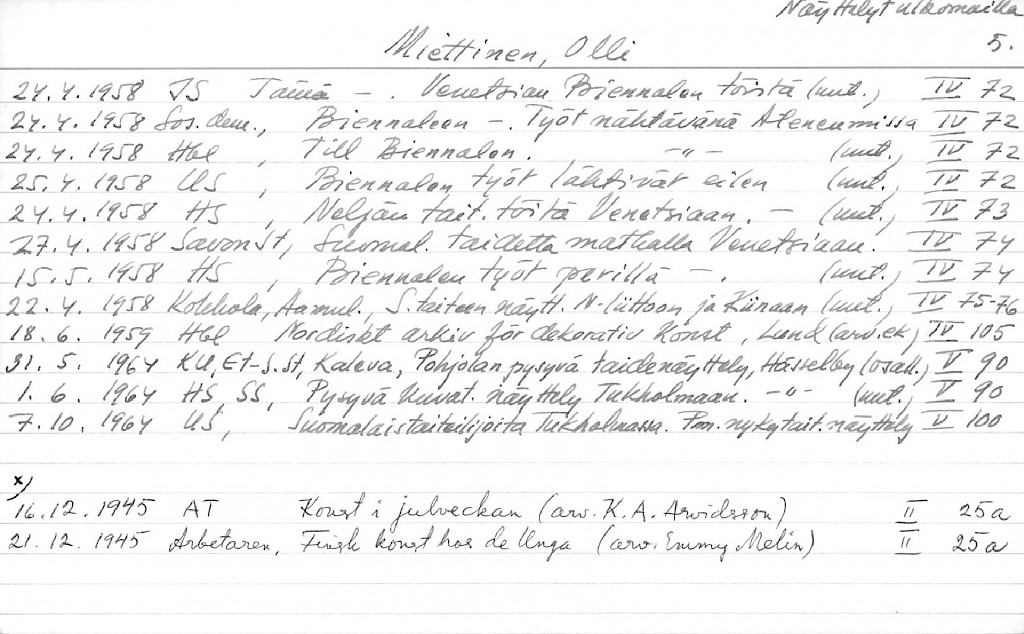 Näyttelyt ulkomailla
Miettinen, Olli 5.
24.4.1958 IS Tämä - . Venetsian Biennalen töistä (mut.) IV 72
24.4.1958 Sos.dem., Biennaleen -. Työt nähtävänä Ateneumissa IV 72
24.4.1958 Hbl , Till Biennalen. -"- (mut.) IV 72
25.4.1958 US , Biennalen työt lähtivät eilen (mut.) IV 72
24.4.1958 HS , Neljän tait. töitä Venetsiaan. - (mut.) IV 73
27.4.1958 Savon St, Suomal. taidetta matkalla Venetsiaan. IV 74
15.5.1958 HS , Biennalen työt perillä -. (mut.) IV 74
22.4.1958 Kokkola, Aamul., S.taiteen näytt. N-liittoon ja Kiinaan (mut.) IV 75-76
18.6.1959 Hbl Nordiskt arkiv för dekorativ konst, Lund (arv.ek) IV 105
31.5.1964 KU, Et-S.St, Kaleva, Pohjolan pysyvä taidenäyttely, Hässelby (osall.) V 90
1.6.1964 HS SS, Pysyvä kuvat. näyttely Tukholmaan. -"- (mut.) V 90
7.10.1964 US, Suomalaistaiteilijoita Tukholmassa. Pm. nykytait. näyttely V 100
x)
16.12.1945 AT Konst i julveckan (arv. K.A. Arvidsson) II 25a
21.12.1945 Arbetaren, Finsk konst hos de Unga (arv. Emmy Melin) II 25a